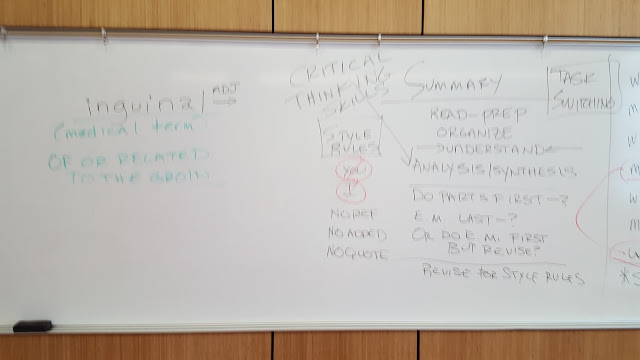 inguinal ADJ
(medical term
OF OR RELATED
TO THE GROIN
CRITICAL
THINKING
SKILLS
STYLE
RULES
you
I
NO REF
NO ADDED
NO QUOTE
SUMMARY
READ-PREP
ORGANIZE
UNDERSTAND
ANALYSIS/SYNTHESIS
DO PARTS FIRST-?
E.M. LAST-?
OR DO E.M. FIRST
BUT REVISE?
REVISE FOR STYLE RULES
TASK
SWITCHING